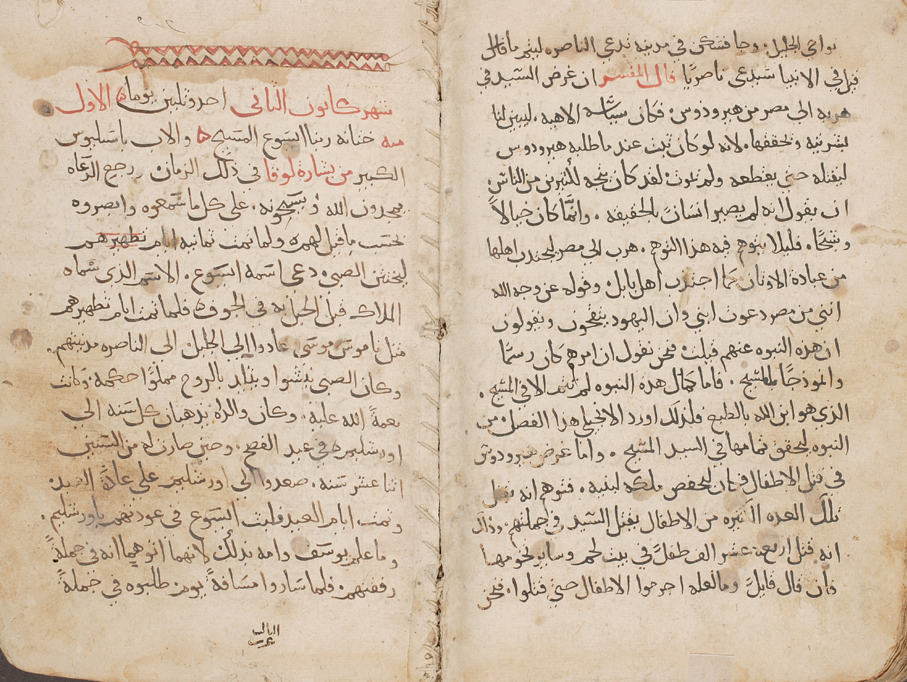 نواحي الجليل. وجا فسكن في مدينه تدعى الناصره ليتم ما قال
قيل في الانبيا سيدعى ناصريا قال المفسر ان غرض السيد في
هربه الى مصر من هيرودوس. فكان سياسه الاهيه. ليبين لنا
بشريته وتحققها. لانه لو كان ثبت عند ما طلبه هيرودوس
ليقتله حتى يقطعه ولم يموت لقد كان يتجه لكثيرين من الناس
ان يقول انه لم يصير انسانا بالحقيقه. وانما كان خيالا
وشبحا. فليلا يتوهم فيه هذا التوهم. هرب الى مصر ليجتذب اهلها
من عبادة الاوثان كما اجتذب اهل بابل. وقوله عن وجه الله
انني من مصر دعوت ابني وان اليهود يتقحون ويقولون
ان هذه النبوه عنهم قيلت. فنحن نقول ان امرهم كان رسما
وانموذجا للمسيح. فاما كمال هذه النبوه لم تتم الا في المسيح.
الذي هو ابن الله بالطبع. ولذلك اورد الانجيلي هذا الفصل من
النبوه ليحقق تمامها في السيد المسيح. واما غرض هيرودوس
في قتل الاطفال فكان ليحفض ملكه لبنيه. فتوهم انه بقتل
تلك العده الكثيره من الاطفال يقتل السيد في جملتهم. وذاك
انه قتل اربعه عشر الف طفل في بيت لحم وساير تخومها
فان قال قايل وما العله اجرموا الاطفال حتى قتلوا. فنحن
شهر كانون الثاني احد وثلثين يوما الاول
منه ختانة ربنا ايسوع المسيح والاب باسيليوس
الكبير من بشارة لوقا في ذلك الزمان. رجع الرعاه
يمجدون الله ويسبحونه. على كل ما سمعوه وابصروه
بحسب ما قيل لهم ولما تمت ثمانيه ايام تطهيرهم
ليختتن الصبي. دعي اسمه ايسوع. الاسم الذي سماه
الملاك قبل الحبل به في الجوف فلما تمت ايام تطهيرهم
مثل ناموس موسى. عادوا الى الجليل الى الناصره مدينتهم.
وكان الصبي ينشوا ويتايد بالروح مملوا حكمه. وكانت
نعمة الله عليه. وكان والداه يذهبان كل سنه الى
اورشليم في عيد الفصح. وحين صار له من السنين
اثنا عشر سنه. صعدوا الى اورشليم على عادة العيد.
وتمت ايام العيد فلبث ايسوع في عودتهم باورشليم.
وما علم يوسف وامه بذلك لانهما اتوهما انه في جملة
رفقتهم. فلما ساروا مسافة يوم. طلبوه في جملة